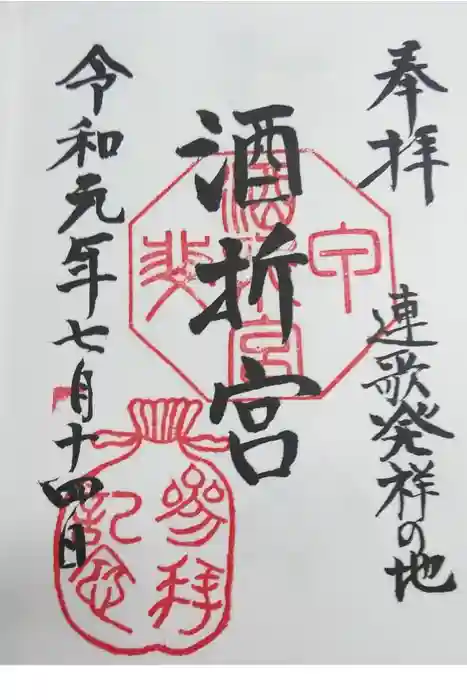 奉拝
連歌発祥の地
酒折宮
令和元年七月十四日
参拝
記念